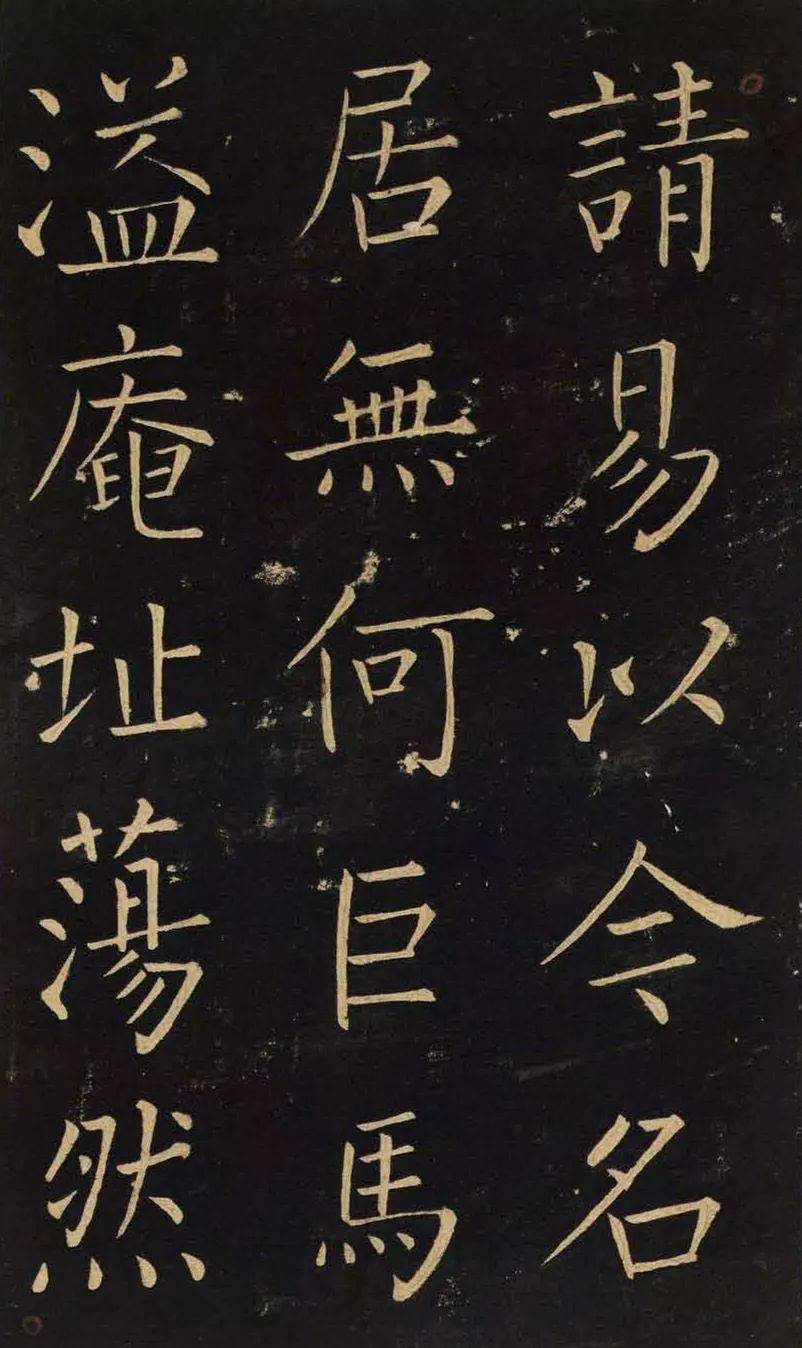 請易以令名
居無何巨馬
溢庵址蕩然